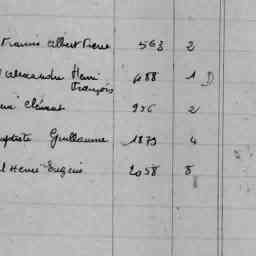 Francis Albert Pierre 563 2
Alexandre Henri 488 1 D
François
Clément 936 2
Guillaume 1873 4
Henri Eugène 2058 8